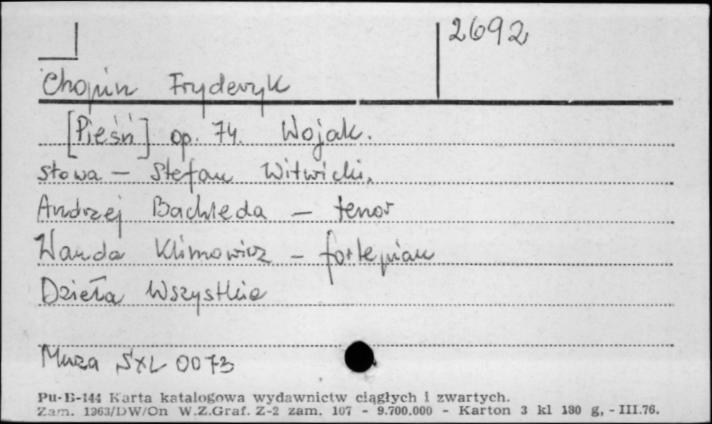 2692
Chopin Fryderyk
[Pieśń] op. 74. Wojak.
słowa – Stefan Witwicki,
Andrzej Bachleda – tenor
Wanda Klimowicz – fortepian
Dzieła Wszystkie
Muza SXL 0073
Pu-B-144 Karta katalogowa wydawnictw ciągłych i zwartych.
Zam. 1363/DW/On W.Z.Graf. Z-2 zam. 107 - 9.700.000 - Karton 3 kl 180 g, - III.76.